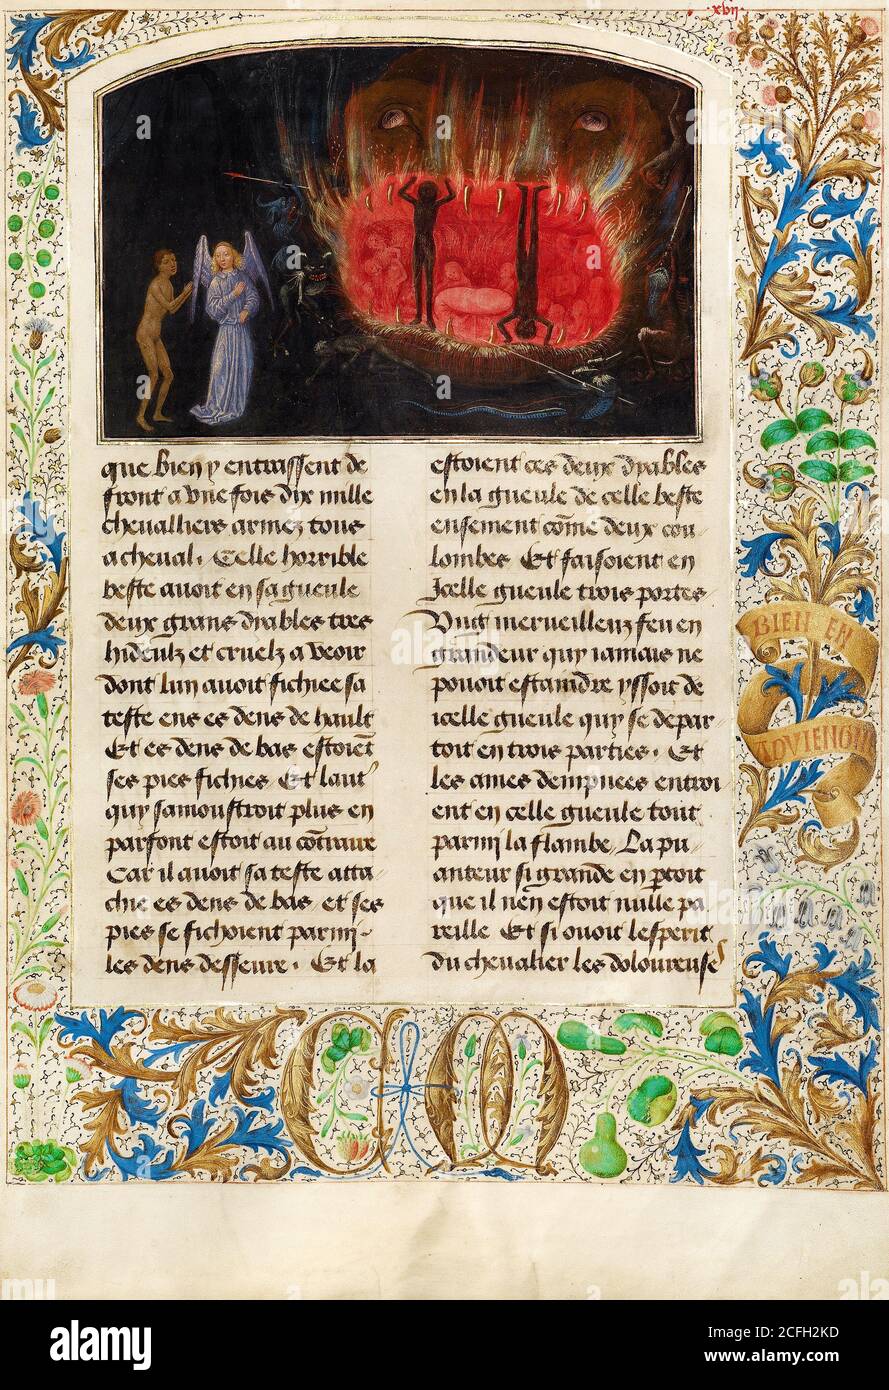 .xvij.
que bien y entrassent de
front a vne fois dix mille
chevalliers armez tous
a cheval. Celle horrible
beste avoit en sa gueule
deux grans dyables tres
hideulz et cruelz a veoir
dont lun avoit fichiee sa
teste ens es dens de hault
Et es dens de bas estoiẽt
ses pies fichies. Et laut'
quy samoustroit plus en
parfont estoit au cõtraire
Car il avoit sa teste atta
chie es dens de bas et ses
pies se fichoient parmi
les dens desseure. Et la
estoient ces deux dyables
en la gueule de celle beste
ensement cõme deux cou
lombes Et faisoient en
Jcelle gueule trois portes
Vng merveilleux feu en
grandeur quy iamais ne
povoit estaindre yssoit de
icelle gueule quy se depar
toit en trois parties. Et
les ames dempnees entroi
ent en celle gueule tout
parmi la flambe. La pu
anteur si grande en p̱toit
que il nen estoit nulle pa
reille Et si ouoit lesperit
du chevalier les doloreuse
BIEN EN
ADVIENGNE
C M
alamy
Image ID: 2CFH2KD
www.alamy.com